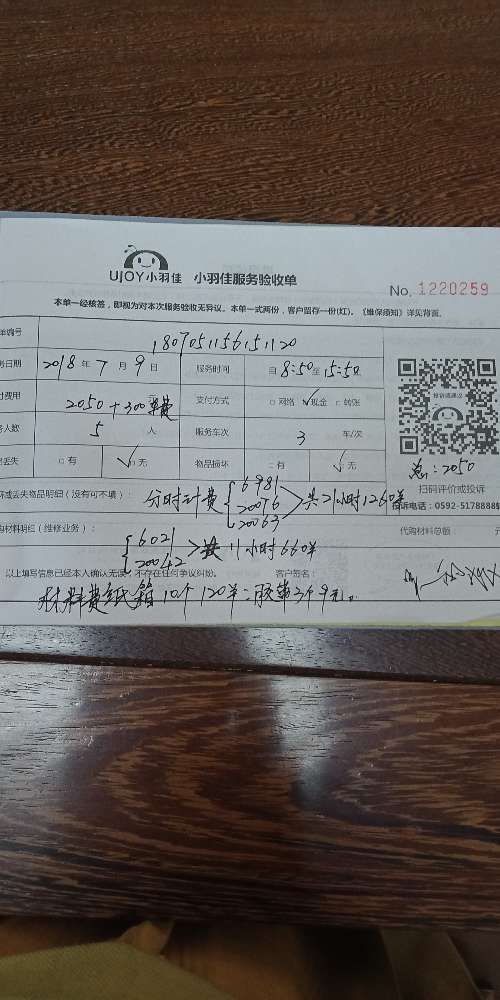 UJOY小羽佳 小羽佳服务验收单
No. 1220259
本单一经核答，即视为对本次服务验收无异议。本单一式两份，客户留存一份(红)。《维保须知》详见背面。
单编号 1807051156151120
务日期 2018年 7 月 9 日 服务时间 自 8:50 至 15:50
付费用 2050+300 费 支付方式 □网络 ☑现金 □转账
务人数 5 人 服务车次 3 车/次
丢失 □有 ☑无 物品损坏 □有 ☑无
总: 2050
扫码评价或投诉
投诉电话：0592-5178888
坏或丢失物品明细（没有可不填）： 分时计费 {6981 20076 20063} 共21小时1260元
购材料明细（维修业务）： 代购材料总额： 元
{6021 20042} 共11小时660元
以上填写信息已经本人确认无误，不存在任何争议纠纷。 客户签名：
材料费纸箱10个120元：胶带3个9元。